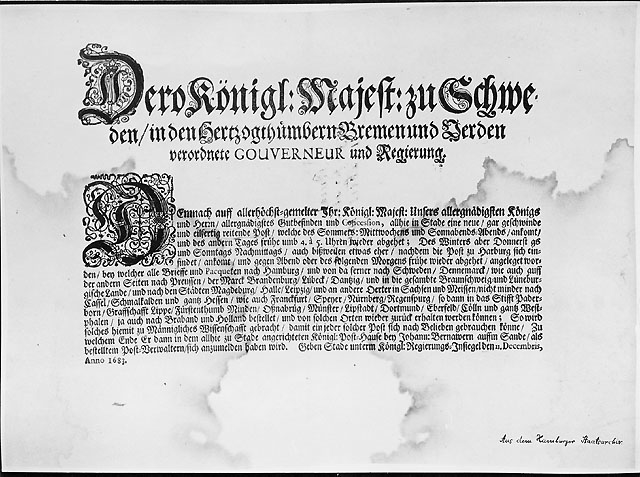 Dero Königl: Majest: zu Schwe-
den / in den Hertzogthümbern Bremen und Verden
verordnete GOUVERNEUR und Regierung.
DEmnach auff allerhöchst-gemelter Ihr: Königl: Majest: Unsers allergnädigsten Königs
und Herrn / allergnädigstes Gutbefinden und Concession, allhie in Stade eine neue / gar geschwinde
und eilfertig reitende Post / welche des Sommers: Mittwochens und Sonnabends Abends / ankomt /
und des andern Tages frühe umb 4. à 5. Uhren wieder abgehet; Des Winters aber Donnerst gs
und Sonntags Nachmittags / auch bißweilen etwas eher / nachdem die Post zu Harburg sich ein-
findet / ankomt / und gegen Abend oder des folgenden Morgens frühe wieder abgehet / angeleget wor-
den / bey welcher alle Brieffe und Pacqueten nach Hamburg / und von da ferner nach Schweden / Dennemarck / wie auch auff
der andern Seiten nach Preussen / der Marck Brandenburg / Lübeck / Dantzig / und in die gesambte Braunschweig-und Lünebur-
gische Lande / und nach den Städten Magdeburg / Halle / Leipzig / und an andere Oerter in Sachsen und Meissen / nicht minder nach
Cassel / Schmalkalden und gantz Hessen / wie auch Franckfurt / Speyer / Nürnberg / Regenspurg / so dann in das Stifft Pader-
born / Graffschafft Lippe / Fürstenthumb Minden / Oßnabrig / Münster / Lipstadt / Dortmund / Eberfeld / Cölln und gantz West-
phalen / ja auch nach Braband und Holland bestellet / und von solchen Orten wieder zurück erhalten werden können; So wird
solches hiemit zu Männigliches Wissenschafft gebracht / damit ein jeder solcher Post sich nach Belieben gebrauchen könne / Zu
welchem Ende Er dann in dem allhie zu Stade angerichteten Königl: Post-Hause bey Johann: Bernawern auffm Sande / als
bestelltem Post-Verwaltern / sich anzumelden haben wird. Geben Stade unterm Königl: Regierungs-Insiegel den 11. Decembris,
Anno 1683.
Aus dem Hamburger Staatsarchiv